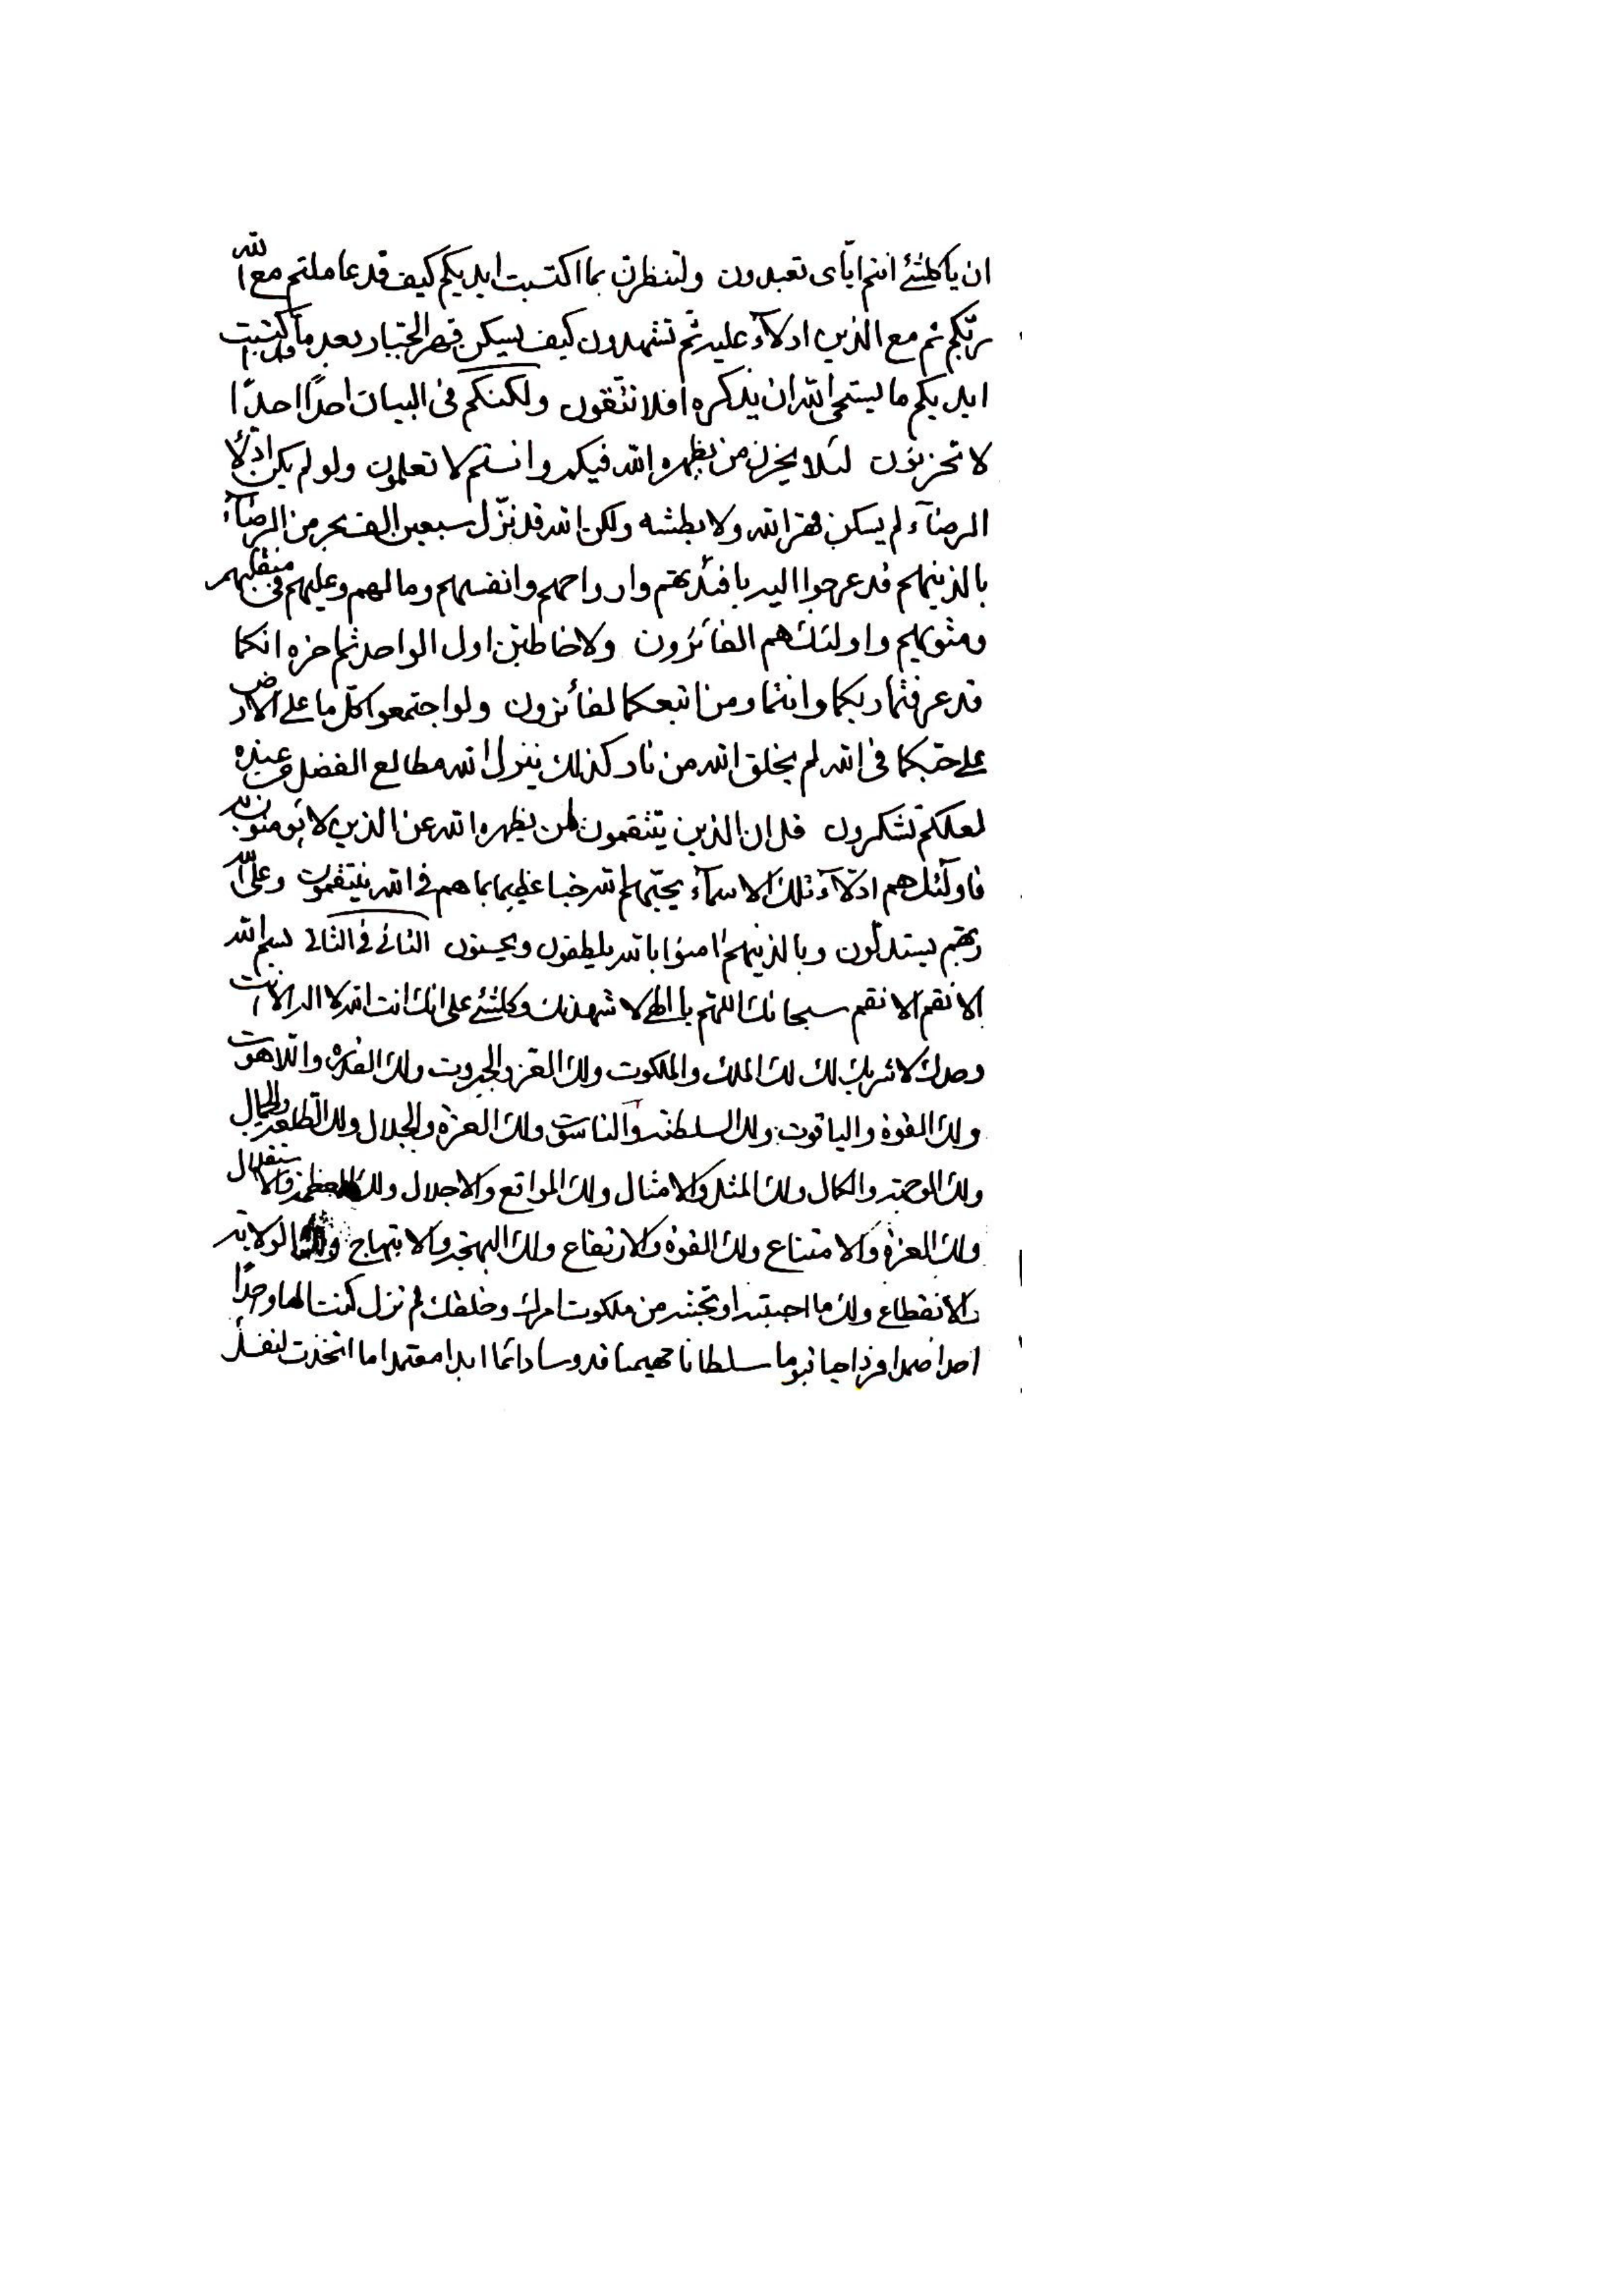 ان يا كلشئ انتم ايّاى تعبدون ولتنظرن بما اكتسبت ايديكم كيف قد عاملتم مع الله
ربّكم ثم مع الذين ادلآء عليه ثمّ تشهدون كيف يسكن قهر الجبار بعد ما قد اكتسبت
ايديكم ما يستحى الله ان يذكره افلا تتّقون ولكنكم فى البيان احدًا احدًا
لا تحزنون لئلا يحزن من يظهره الله فيكم وانتم لا تعلمون ولو لم يكن ادلآء
الرضآء لم يسكن قهر الله ولا بطشه ولكن الله قد نزّل سبعين الف بحر من الرضآء
بالذينهم قد عرجوا اليه بافئدتهم وارواحهم وانفسهم وما لهم وعليهم فى منقلبهم
ومثويهم واولئك هم الفائزون ولاخاطبن اول الواحد ثم اخره انكما
قد عرفتما ربكما وانتما ومن اتبعكما لفائزون ولو اجتمعوا كلّ ما على الارض
على حبكما فى الله لم يخلق الله من نار كذلك ينزل الله مطالع الفضل من عنده
لعلكم تشكرون قل ان الذين ينتقمون لمن يظهره الله عن الذين لا يؤمنون به
فاولئك هم ادلآء تلك الاسمآء يحبّهم الله حبا عظيما بما هم فى الله ينتقمون وعلى الله
ربهم يستدلّون وبالذينهم امنوا بالله يلطفون ويحسنون الثانى فى الثانى بسم الله
الانقم الانقم سبحانك اللهم يا الهى لاشهدنك وكلشئ على انك انت الله لا اله الا انت
وحدك لا شريك لك لك الملك والملكوت ولك العز والجبروت ولك القدرة واللاهوت
ولك القوة والياقوت ولك السلطنة والناسوت ولك العزة والجلال ولك الطلعة والجمال
ولك الوجهة والكمال ولك المثل والامثال ولك المواقع والاجلال ولك العظمة والاستقلال
ولك العزة والامتناع ولك القوة والارتفاع ولك البهجة والابتهاج ولك الولاية
والانقطاع ولك ما احببته او تحبنه من ملكوت امرك وخلقك لم تزل كنت الها واحدًا
احدا صمدا فردا حيا قيوما سلطانا مهيمنا قدوسا دائما ابدا معتمدا ما اتخذت لنفسك